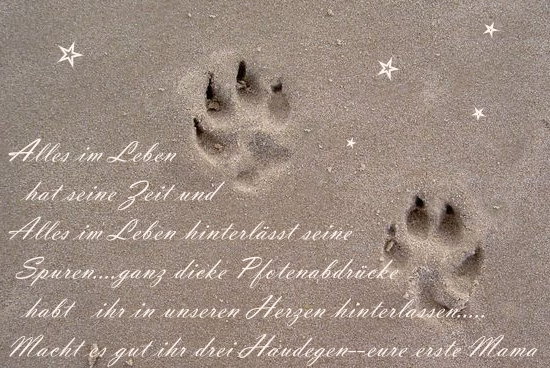 Alles im Leben
hat seine Zeit und
Alles im Leben hinterlässt seine
Spuren....ganz dicke Pfotenabdrücke
habt ihr in unseren Herzen hinterlassen.....
Macht es gut ihr drei Haudegen--eure erste Mama